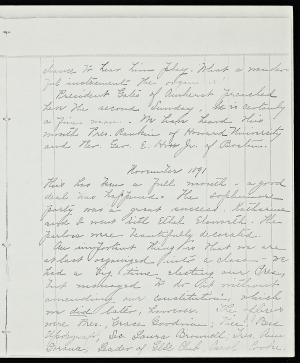 chance to hear him play. What a wonder-
ful instrument the organ is!
President Gates of Amherst preached
here the second Sunday. He is certainly
a fine man. We have heard this
month Pres. Rankin of Howard University
and Rev. Geo. E. Horr Jr. of Boston.
November 1891
This has been a full month - a good
deal has happened. The Sophomore
party was a great success. Katharine
and I went with Ethel
parlors were beautifully decorated.
An important thing is that we are
at last organized into a class - we
had a big time electing our Pres,
but managed to do it without
amending our constitution, which
we did later, however. The officers
were Pres., Grace Goodrich; Vice, Bee
Sec Laura Brownell; Treas,
Leader of Glee Club